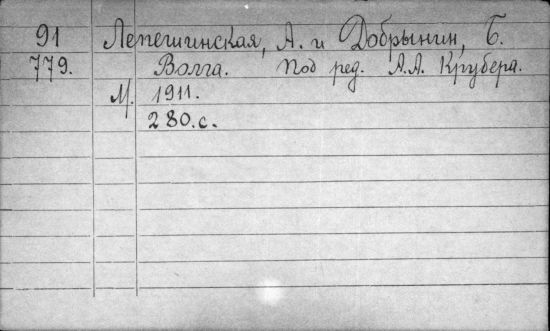 91 Лепешинская, А. и Добрынин, Б.
779. Волга. Под ред. А.А. Крубера.
М. 1911.
280.с.